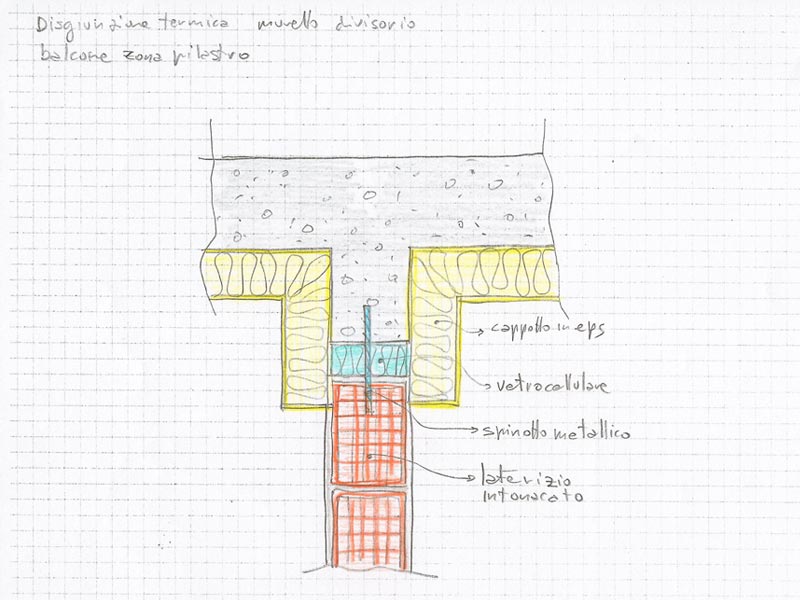 Disgiunzione termica murello divisorio
balcone zona pilastro
cappotto in eps
vetrocellulare
spinotto metallico
laterizio
intonacato